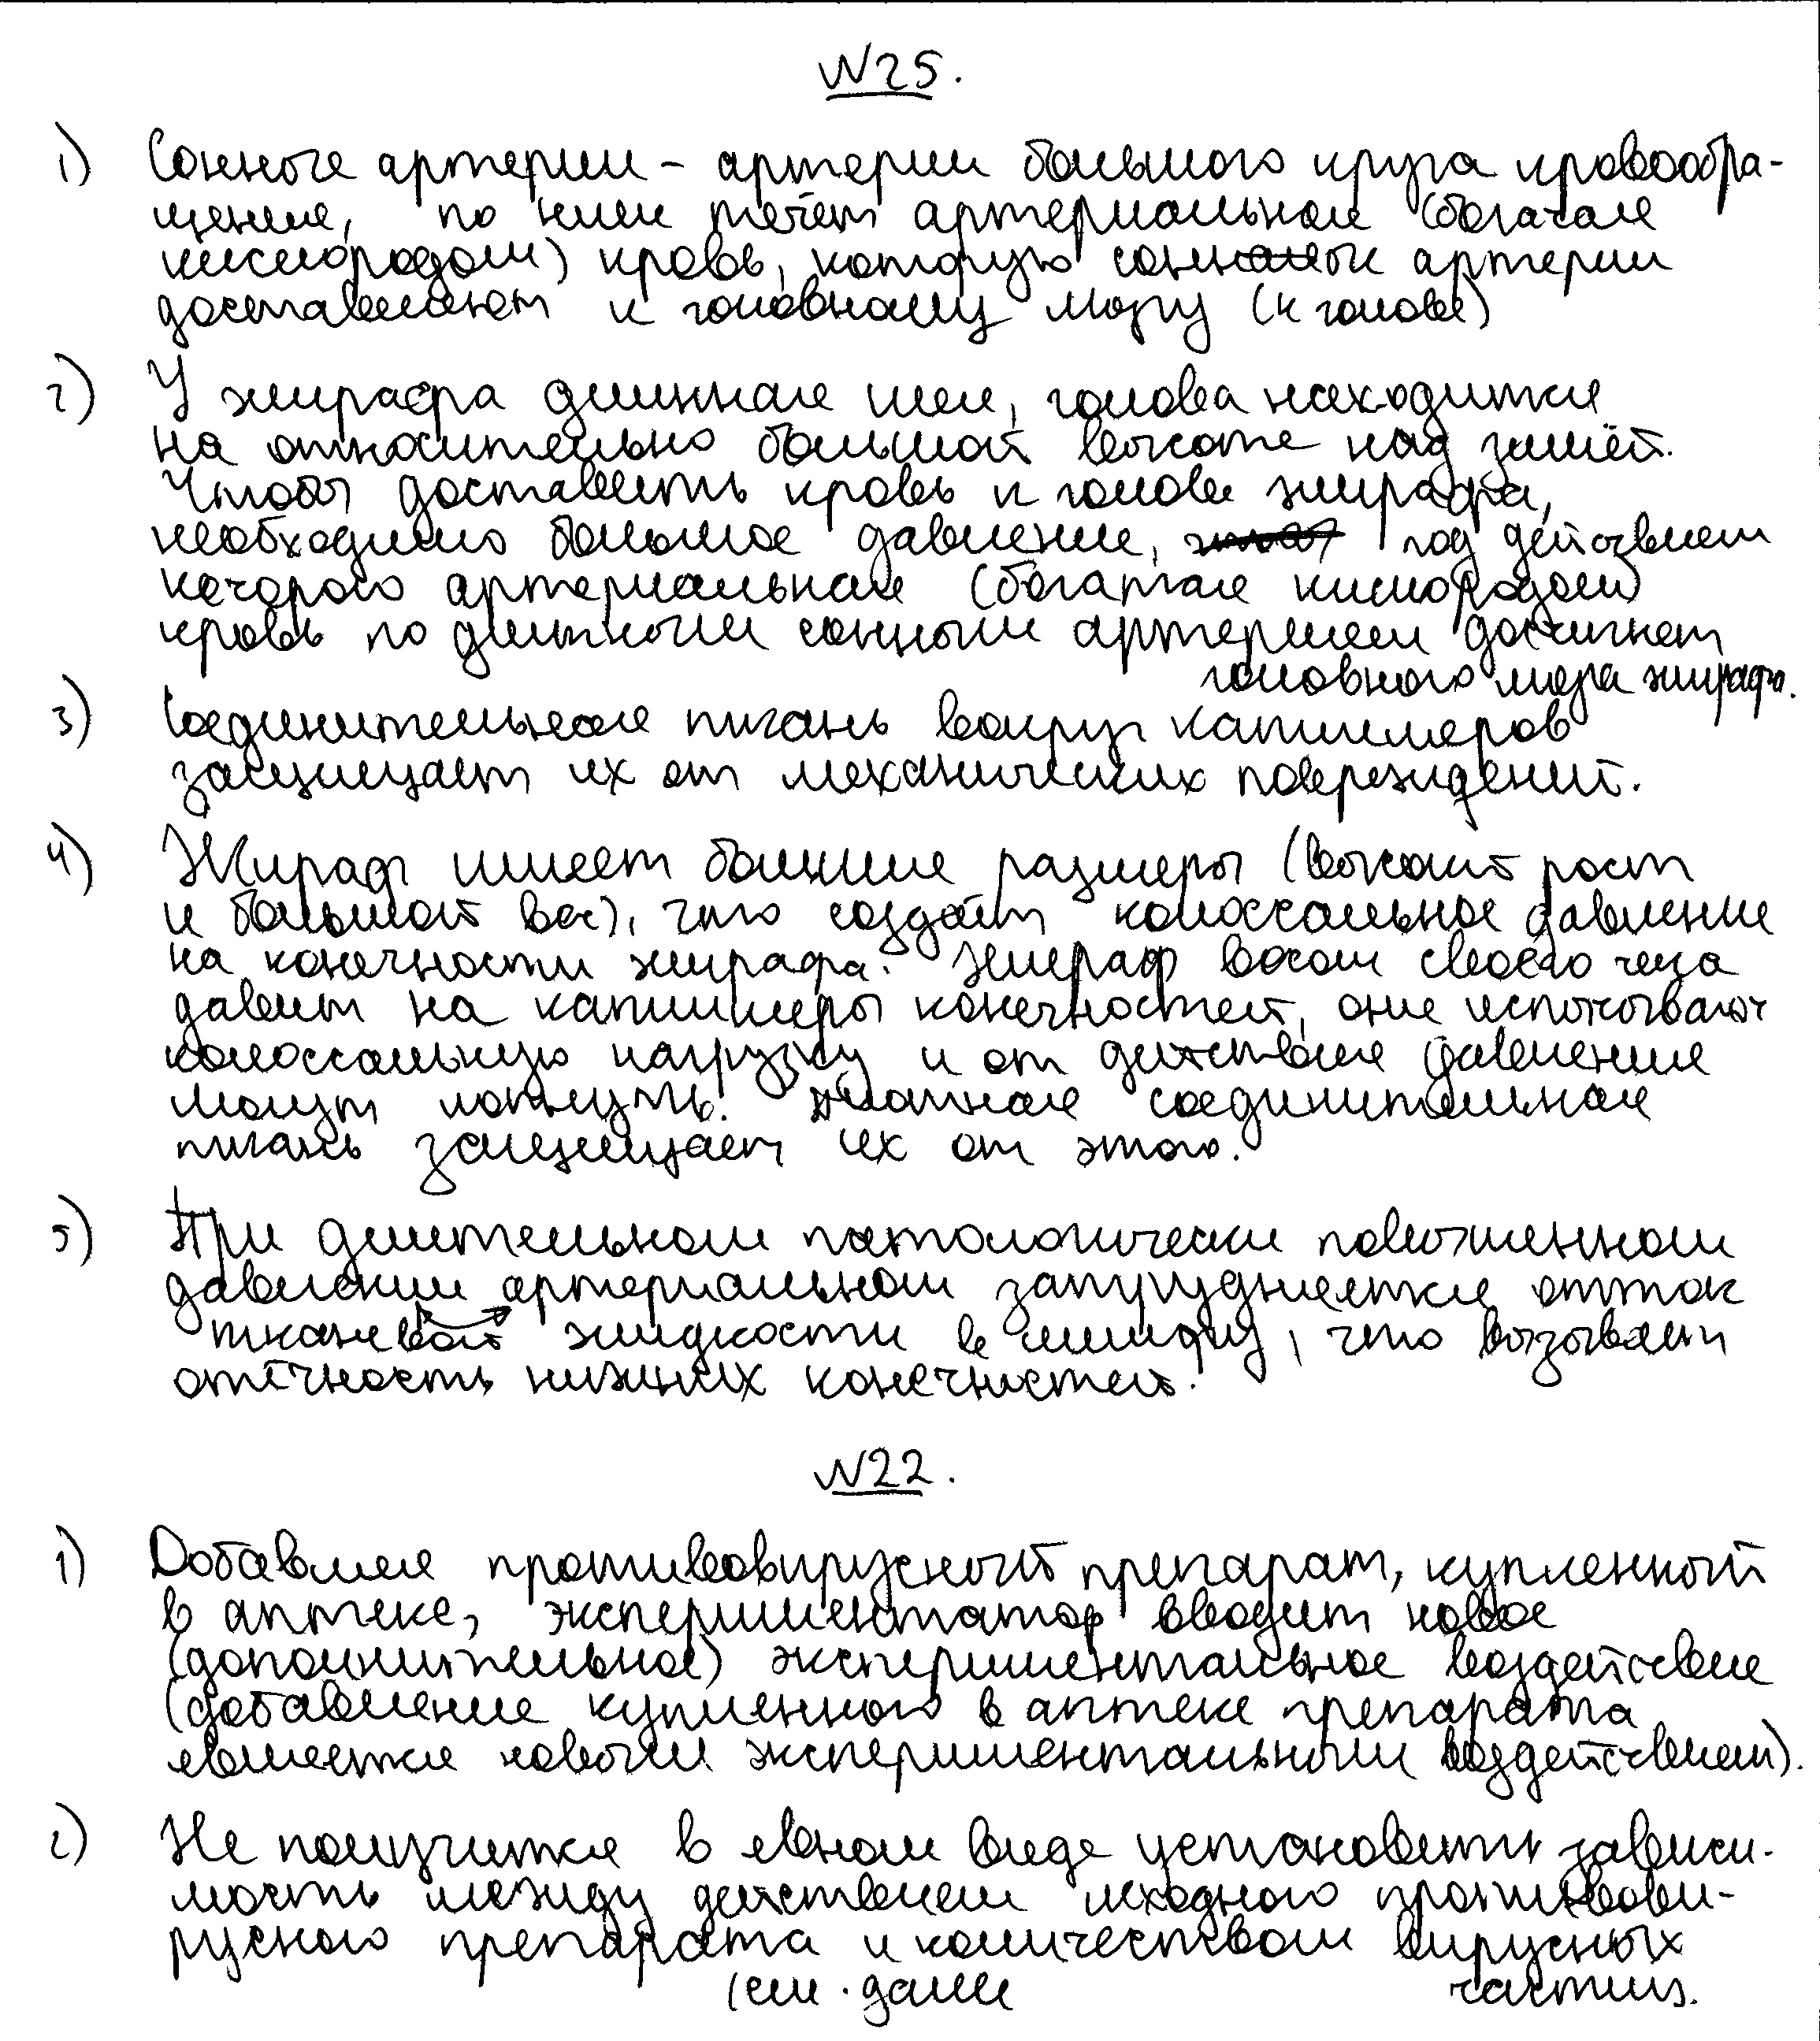 №25.
1) Сонные артерии - артерии большого круга кровообра-
щения, по ним течёт артериальная (богатая
кислородом) кровь, которую сонные артерии
доставляют к головному мозгу (к голове)
2) У жирафа длинная шея, голова находится
на относительно большой высоте над землёй.
Чтобы доставить кровь к голове жирафа,
необходимо большое давление, под действием
которого артериальная (богатая кислородом)
кровь по длинным сонным артериям достигнет
головного мозга жирафа.
3) Соединительная ткань вокруг капилляров
защищает их от механических повреждений.
4) Жираф имеет большие размеры (высокий рост
и большой вес), что создаёт колоссальное давление
на конечности жирафа. Жираф весом своего тела
давит на капилляры конечностей, они испытывают
колоссальную нагрузку и от действия давления
могут лопнуть. Плотная соединительная
ткань защищает их от этого.
5) При длительном патологически повышенном
давлении артериальном затрудняется отток
тканевой жидкости в лимфу, что вызывает
отёчность нижних конечностей.
№22.
1) Добавляя противовирусный препарат, купленный
в аптеке, экспериментатор вводит новое
(дополнительное) экспериментальное воздействие
(добавление купленного в аптеке препарата
является новым экспериментальным воздействием).
2) Не получится в явном виде установить зависи-
мость между действием исходного противови-
русного препарата и количеством вирусных
частиц.
(см. далее